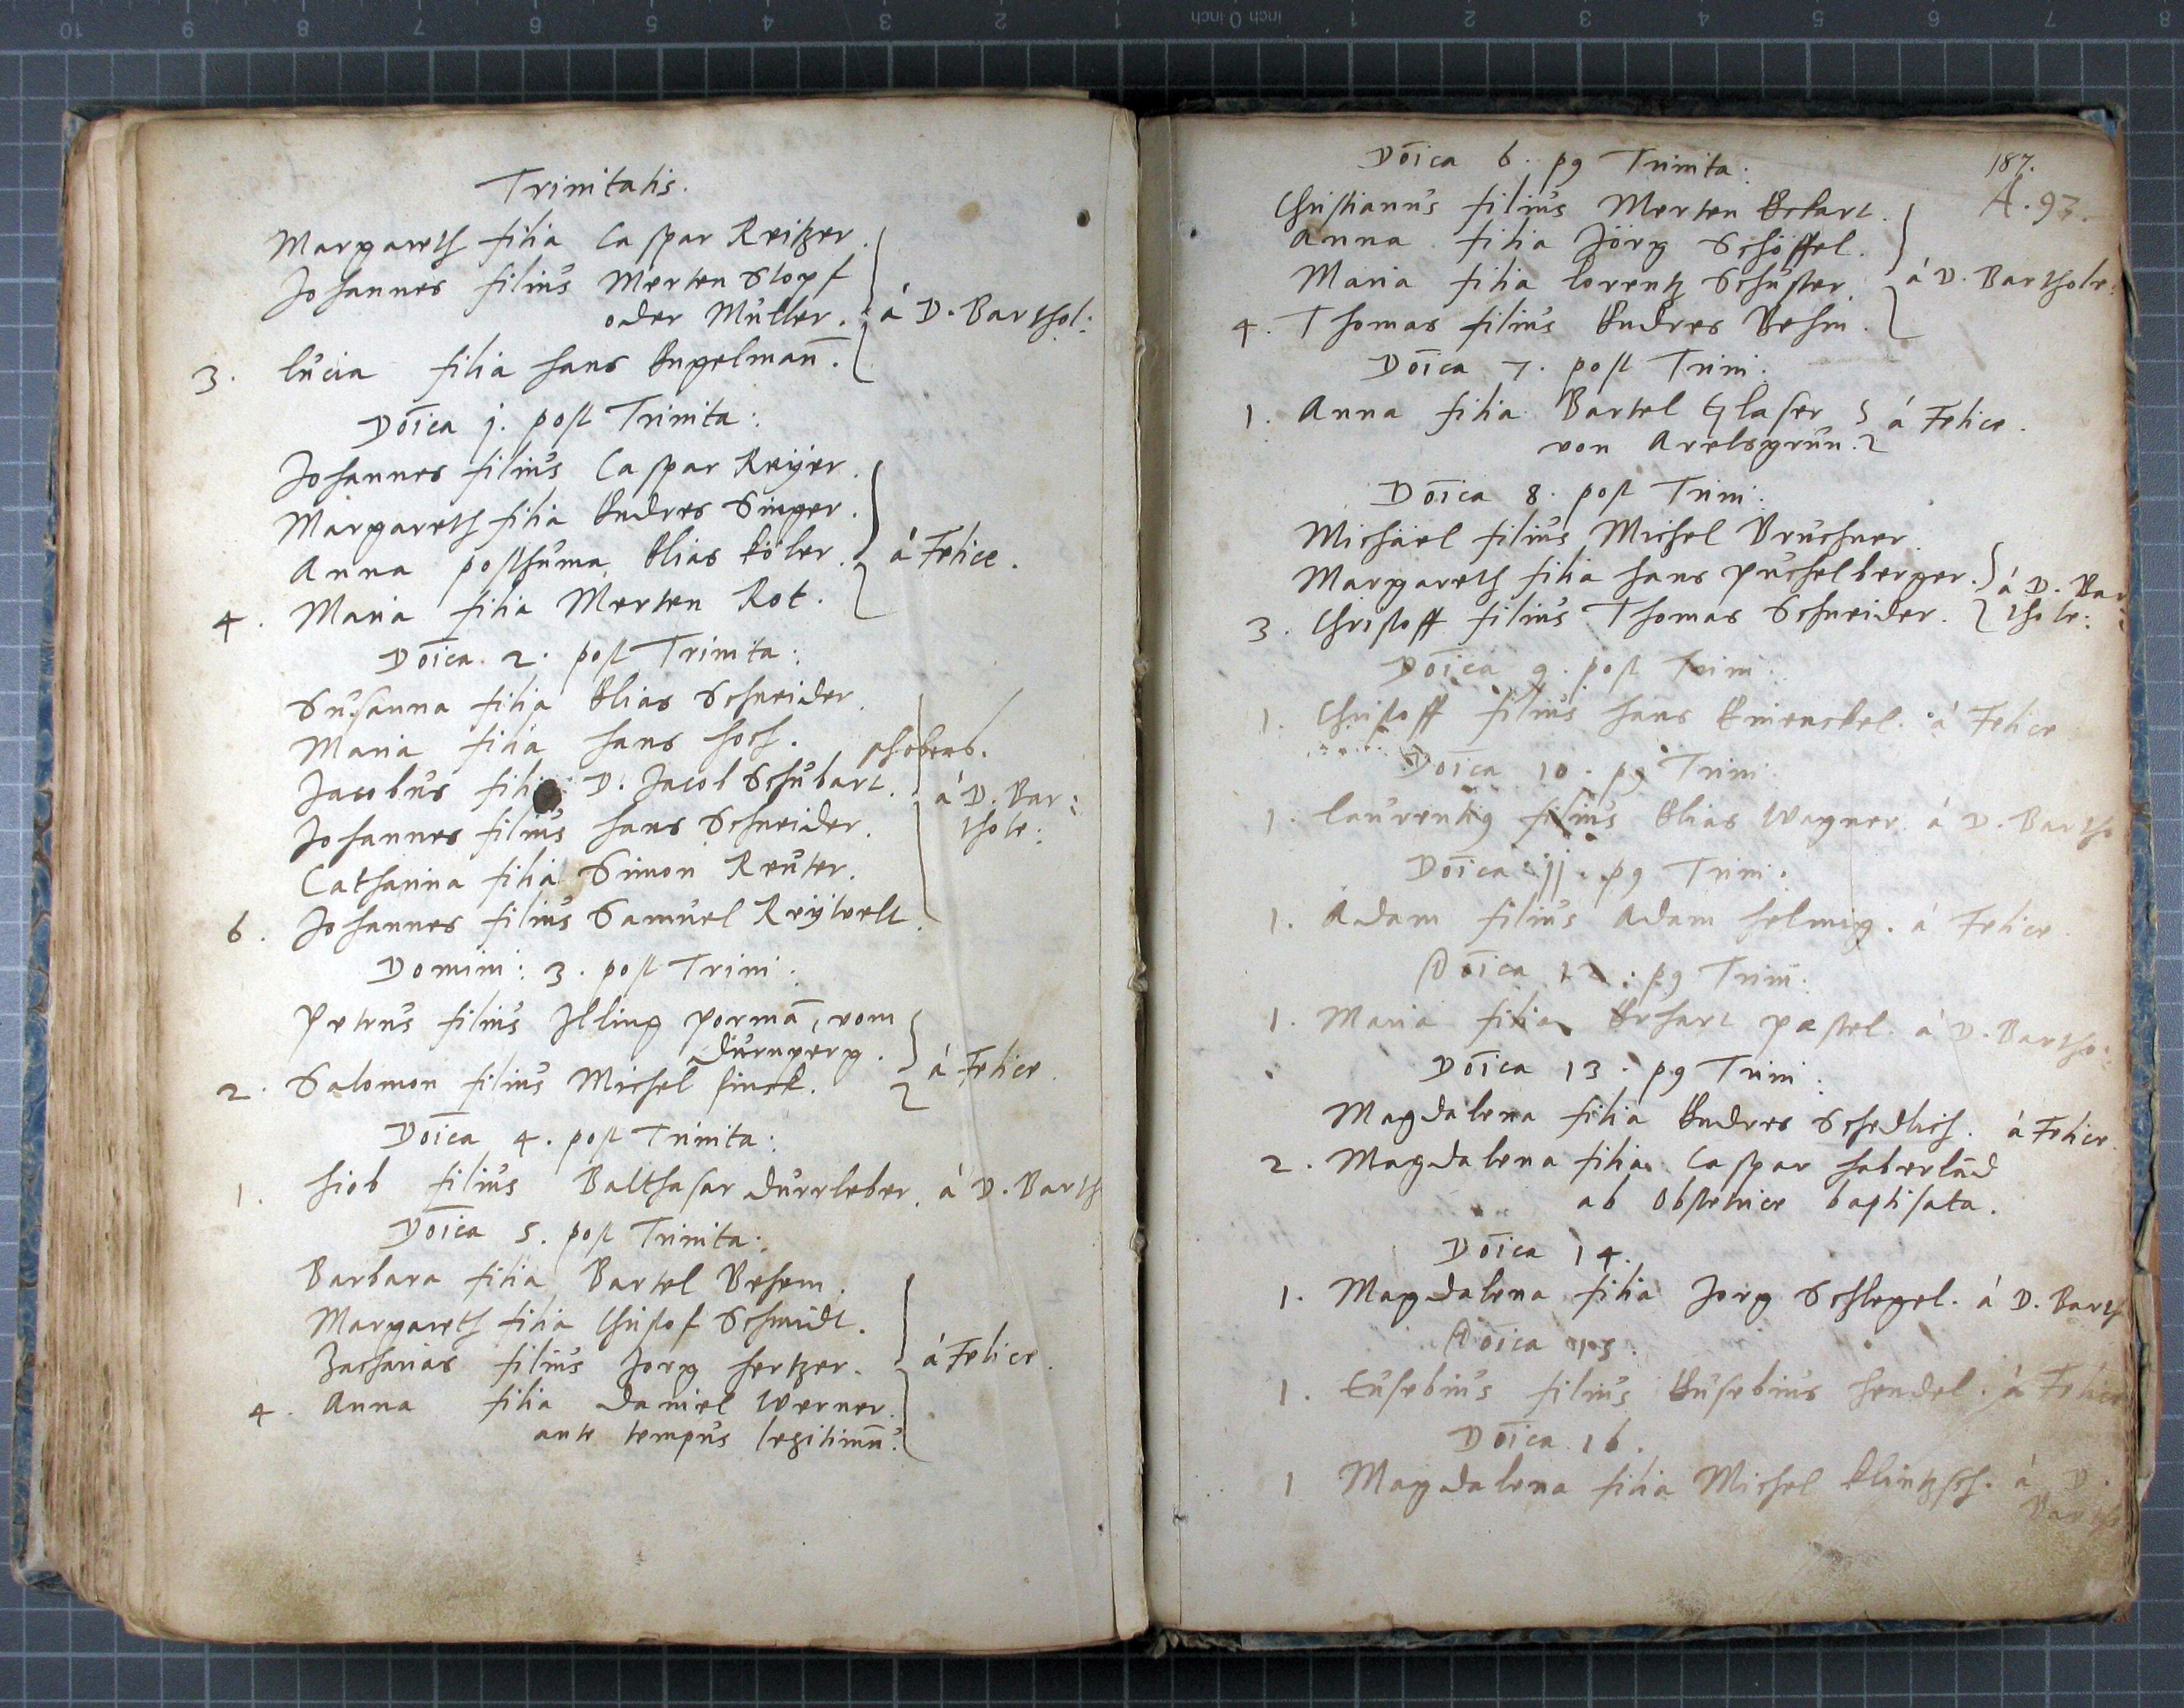 Trinitatis.
Margareth filia Caspar Reitzer.
Johannes filius Merten Stopf
oder Müller. á D. Barthol:
3. Lucia filia Hans Engelman̄.
Dōica j. post Trinita:
Johannes filius Caspar Reÿer.
Margareth filia Endres Singer.
Anna posthuma Elias Köler. á Felice.
4. Maria filia Merten Rot.
Dōica 2. post Trinita:
Susanna filia Elias Schneider.
Maria filia Hans Hoch.
Jacobus D. Jacob Schubart. á D. Bar:
Johannes filius Hans Schneider. thole:
Catharina filia Simon Reuter.
6. Johannes filius Samuel Reÿtvelt.
Domini: 3. post Trini:
Petrus filius Illing Pormā, vom
Dürnperg.
2. Salomon filius Michel Finck. á Felice.
Dōica 4. post Trinita:
1. Hiob filius Balthasar Durrleber. á D. Barth
Dōica 5. post Trinita:
Barbara filia Bartel Behem.
Margareth filia Christof Schmidt.
Zacharias filius Jorg Hertzer. á Felice.
4. Anna filia Daniel Werner.
ante tempus legitimū.
187.
A. 93.
Dōica 6. pꝰ Trinita:
Christianus filius Merten Eckart.
Anna filia Jörg Schöffel.
Maria filia Lorentz Schuster. á D. Barthole:
4. Thomas filius Endres Behm.
Dōica 7. post Trini:
1. Anna filia Bartel Glaser á Felice.
von Arelsgrun.
Dōica 8. post Trini:
Michäel filius Michel Bruchner.
Margareth filia Hans Puchelberger. á D. Bar
3. Christoff filius Thomas Schneider. thole:
Dōica 9. post Trini:
1. Christoff filius Hans á Felice
Dōica 10. pꝰ Trini:
1. Laurentiꝰ filius Elias Wagner. á D. Bartho
Dōica jj. pꝰ Trini:
1. Adam filius Adam Helmig. á Felice.
Dōica 12. pꝰ Trini:
1. Maria filia Erhart Pastel. á D. Bartho:
Dōica 13. pꝰ Trini:
Magdalena filia Endres Schedlich. á Felice.
2. Magdalena filia Caspar Haberlād
ab Obstetrice baptisata.
Dōica 14.
1. Magdalena filia Jorg Schlegel. á D. Barth
Dōica 15.
1. Eusebius filius Eusebius Hendel. á Felice
Dōica 16.
1 Magdalena filia Michel Klintzsch. á D.
Barth